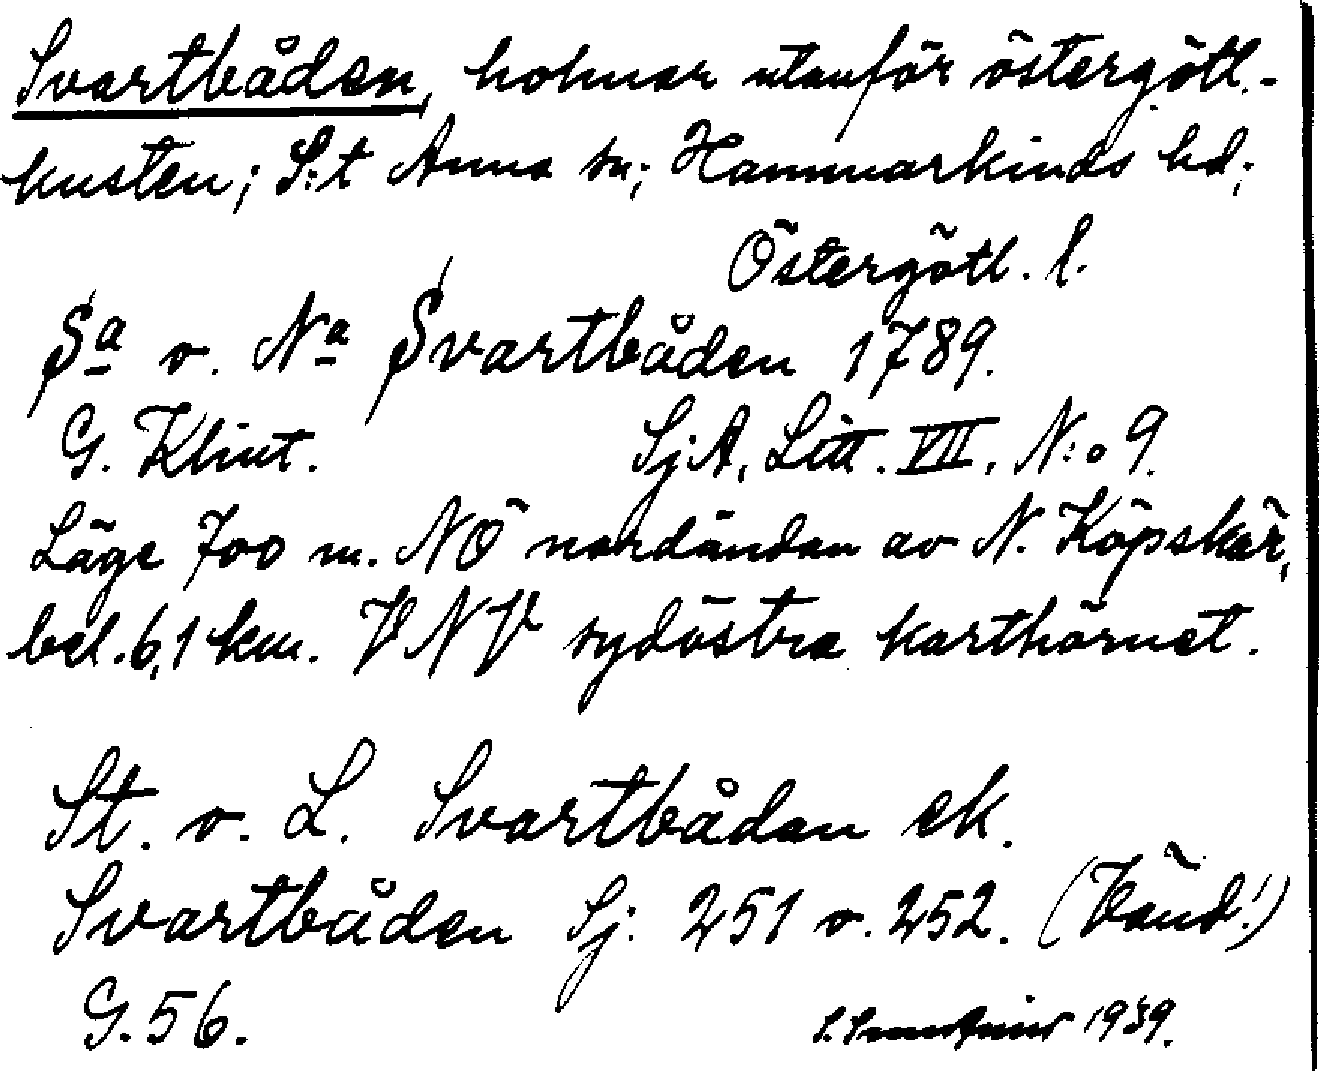 Svartbåden, holmar utanför östergötl.-
kusten; S:t Anna sn; Hammarkinds hd;
Östergötl. l.
Sa o. Na Svartbåden 1789.
G. Klint. SjA, Litt. VII, N:o 9.
Läge 700 m. NÖ nordändan av N. Köpskär,
bel. 6,1 km. VNV sydöstra karthörnet.
St. o. L. Svartbådan ek.
Svartbåden Sj. 251 o. 252. (Vänd!)
G. 56.
1939.